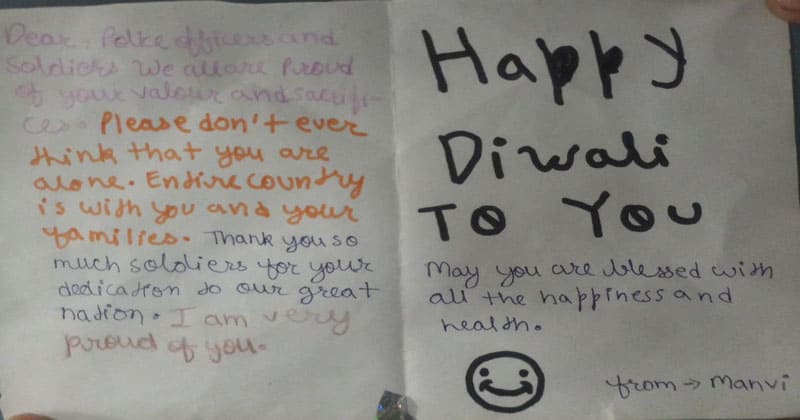 Dear, Police officers and
Soldiers We all are Proud
of your valour and sacrifi-
ces. Please don't ever
think that you are
alone. Entire country
is with you and your
families. Thank you so
much soldiers for your
dedication to our great
nation. I am very
proud of you.
Happy
Diwali
TO YOU
May you are blessed with
all the happiness and
health.
from → Manvi